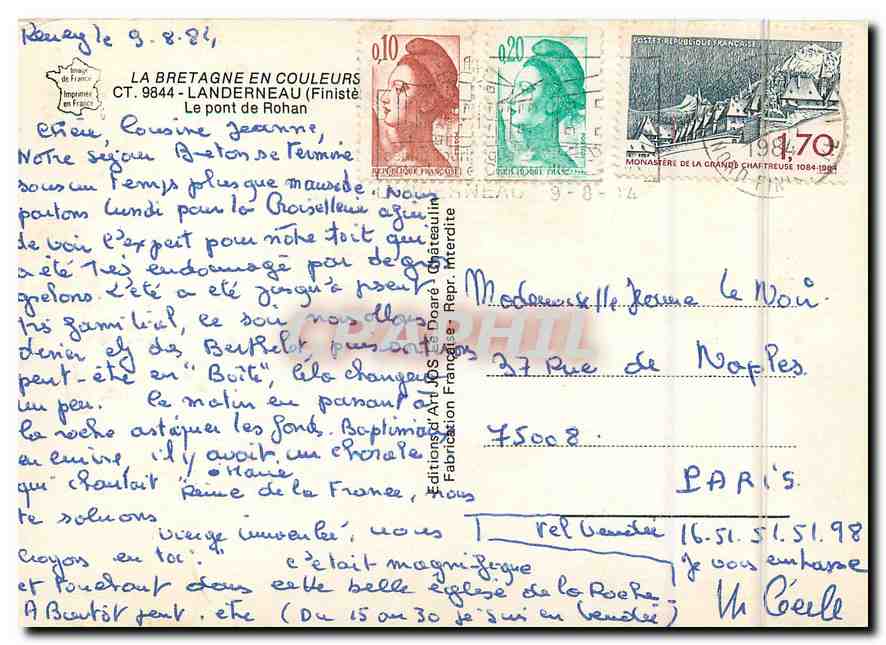 le 9.8.84
Image
de France
Imprimée
en France
LA BRETAGNE EN COULEURS
CT. 9844 - LANDERNEAU (Finistè
Le pont de Rohan
0,10
REPUBLIQUE FRANCAISE
0,20
REPUBLIQUE FRANCAISE
POSTES·REPUBLIQUE FRANÇAISE
1984
1,70
MONASTÈRE DE LA GRANDE CHARTREUSE 1084-1984
NEAU 9-8-
Chère Cousine Jeanne,
Notre séjour Breton se termine
sous un temps plus que maussade. Nous
partons lundi pour la afin
de voir l'expert pour notre toit, qui
a été très endommagé par de gros
grelons. L'été a été jusqu'à présent
très familial, ce soir nous allons
dîner chez des Berthelot, puis
peut-être en "Boîte", cela changera
un peu. Ce matin en passant à
la roche astiquer les fonds Baptismaux
en cuivre, il y avait un chorale
qui chantait "ô Marie
Reine de la France, nous
te saluons
Vierge immaculée, nous
croyons en toi." c'était magnifique
et touchant dans cette belle église de la Roche.
A Bientôt peut-être (Du 15 au 30 je suis en Vendée)
Editions d'Art JOS Le Doaré - Châteaulin
Fabrication Française - Repr. Interdite
CPAPHIL
Mademoiselle Jeanne Le
37 Rue de Naples
75008.
PARIS
Tel Vendée 16.51.51.51.98
Je vous embrasse
Cécile